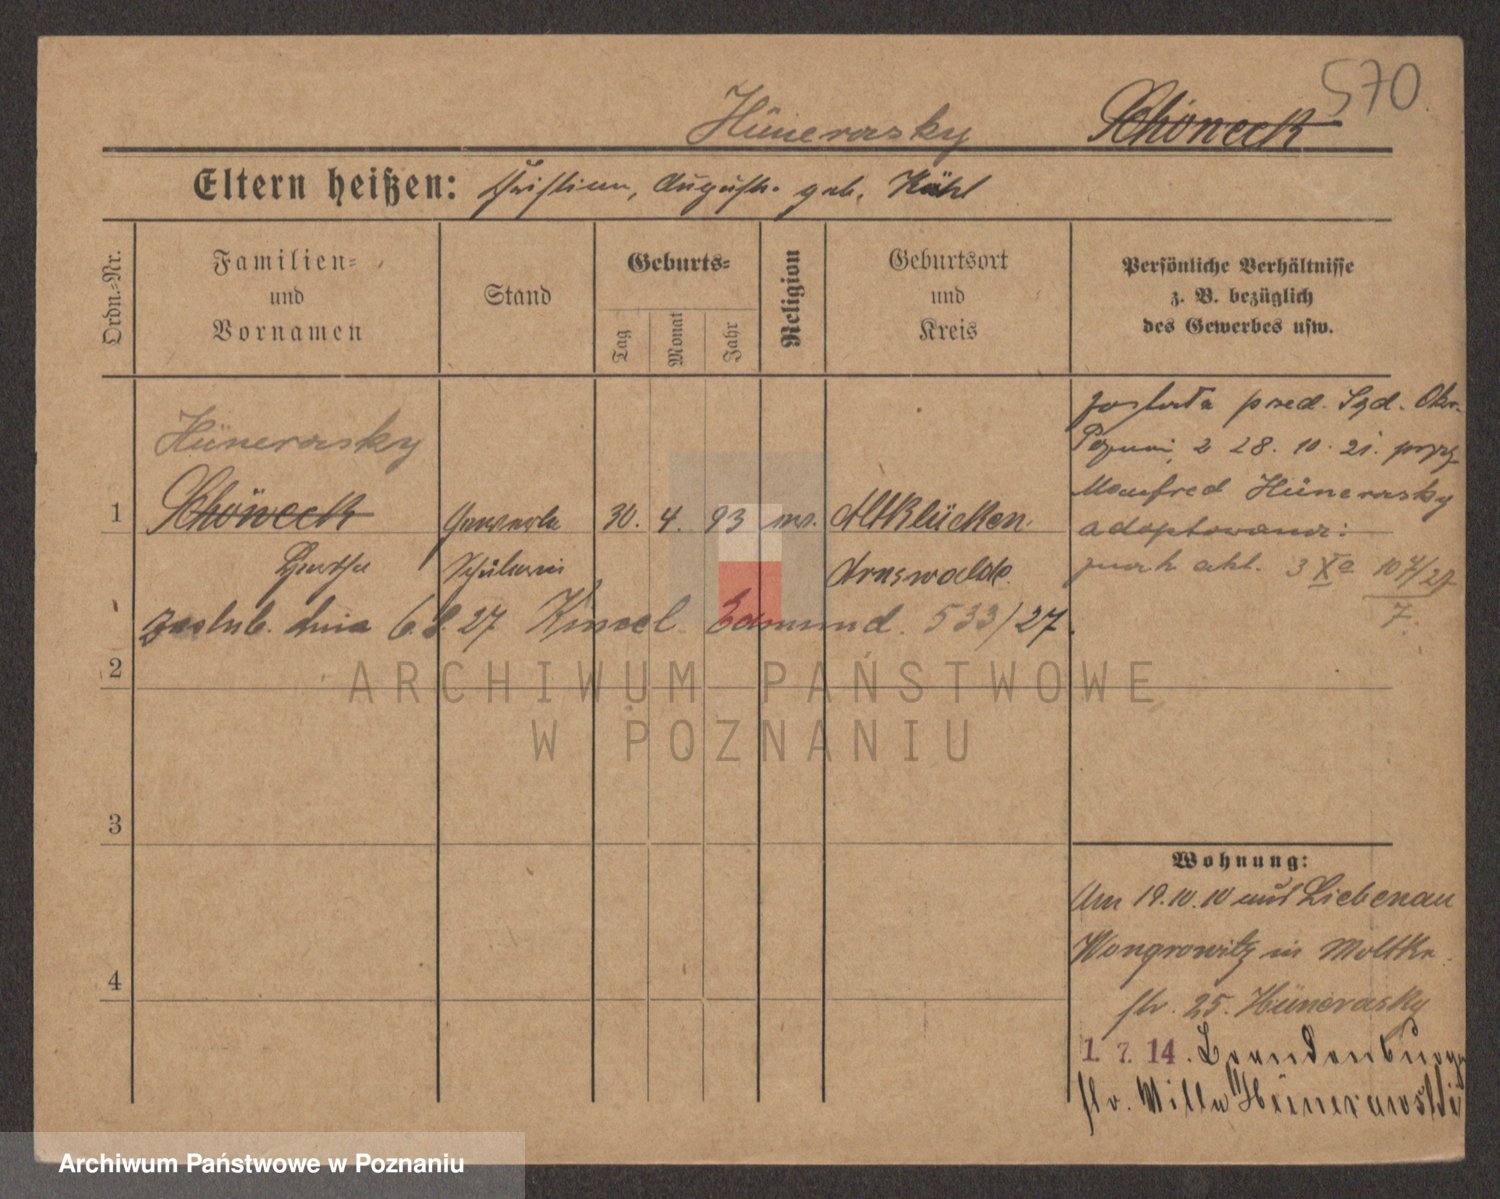 570
Hünerasky Schöneck
Eltern heißen: Christian, Auguste geb. Kähl
Ordn.=Nr.
Familien=
und
Vornamen
Stand
Geburts=
Tag
Monat
Jahr
Religion
Geburtsort
und
Kreis
Persönliche Verhältnisse
z. B. bezüglich
des Gewerbes usw.
Hünerasky
1 Schöneck 30. 4. 93 Altklücken
Hertha Schülerin Arnswalde.
zaslub. dnia 6.8.27 Kinzel Edmund. 533/27.
została przed. Sąd. Okr.
Poznań, z 28. 10. 21. przez
Manfred Hünerasky
adoptowana:
znak akt. 3 X a 107/27
7.
2
3
4
Wohnung:
Am 19.10.10 aus Liebenau
Wongrowitz in Moltke
str. 25. Hünerasky
1. 7. 14. Brandenburger
str. Villa Hünerawski
ARCHIWUM PAŃSTWOWE
W POZNANIU
Archiwum Państwowe w Poznaniu